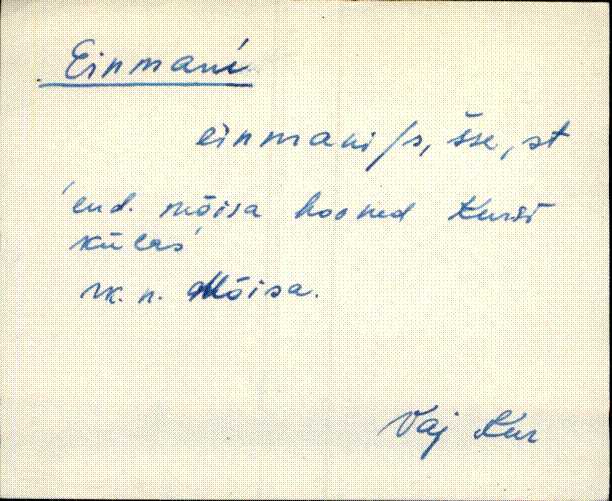 Einmani
einmani/s, šse, st
'end. mõisa hooned Kursi
külas'
rk. n. Mõisa.
Vaj Kur